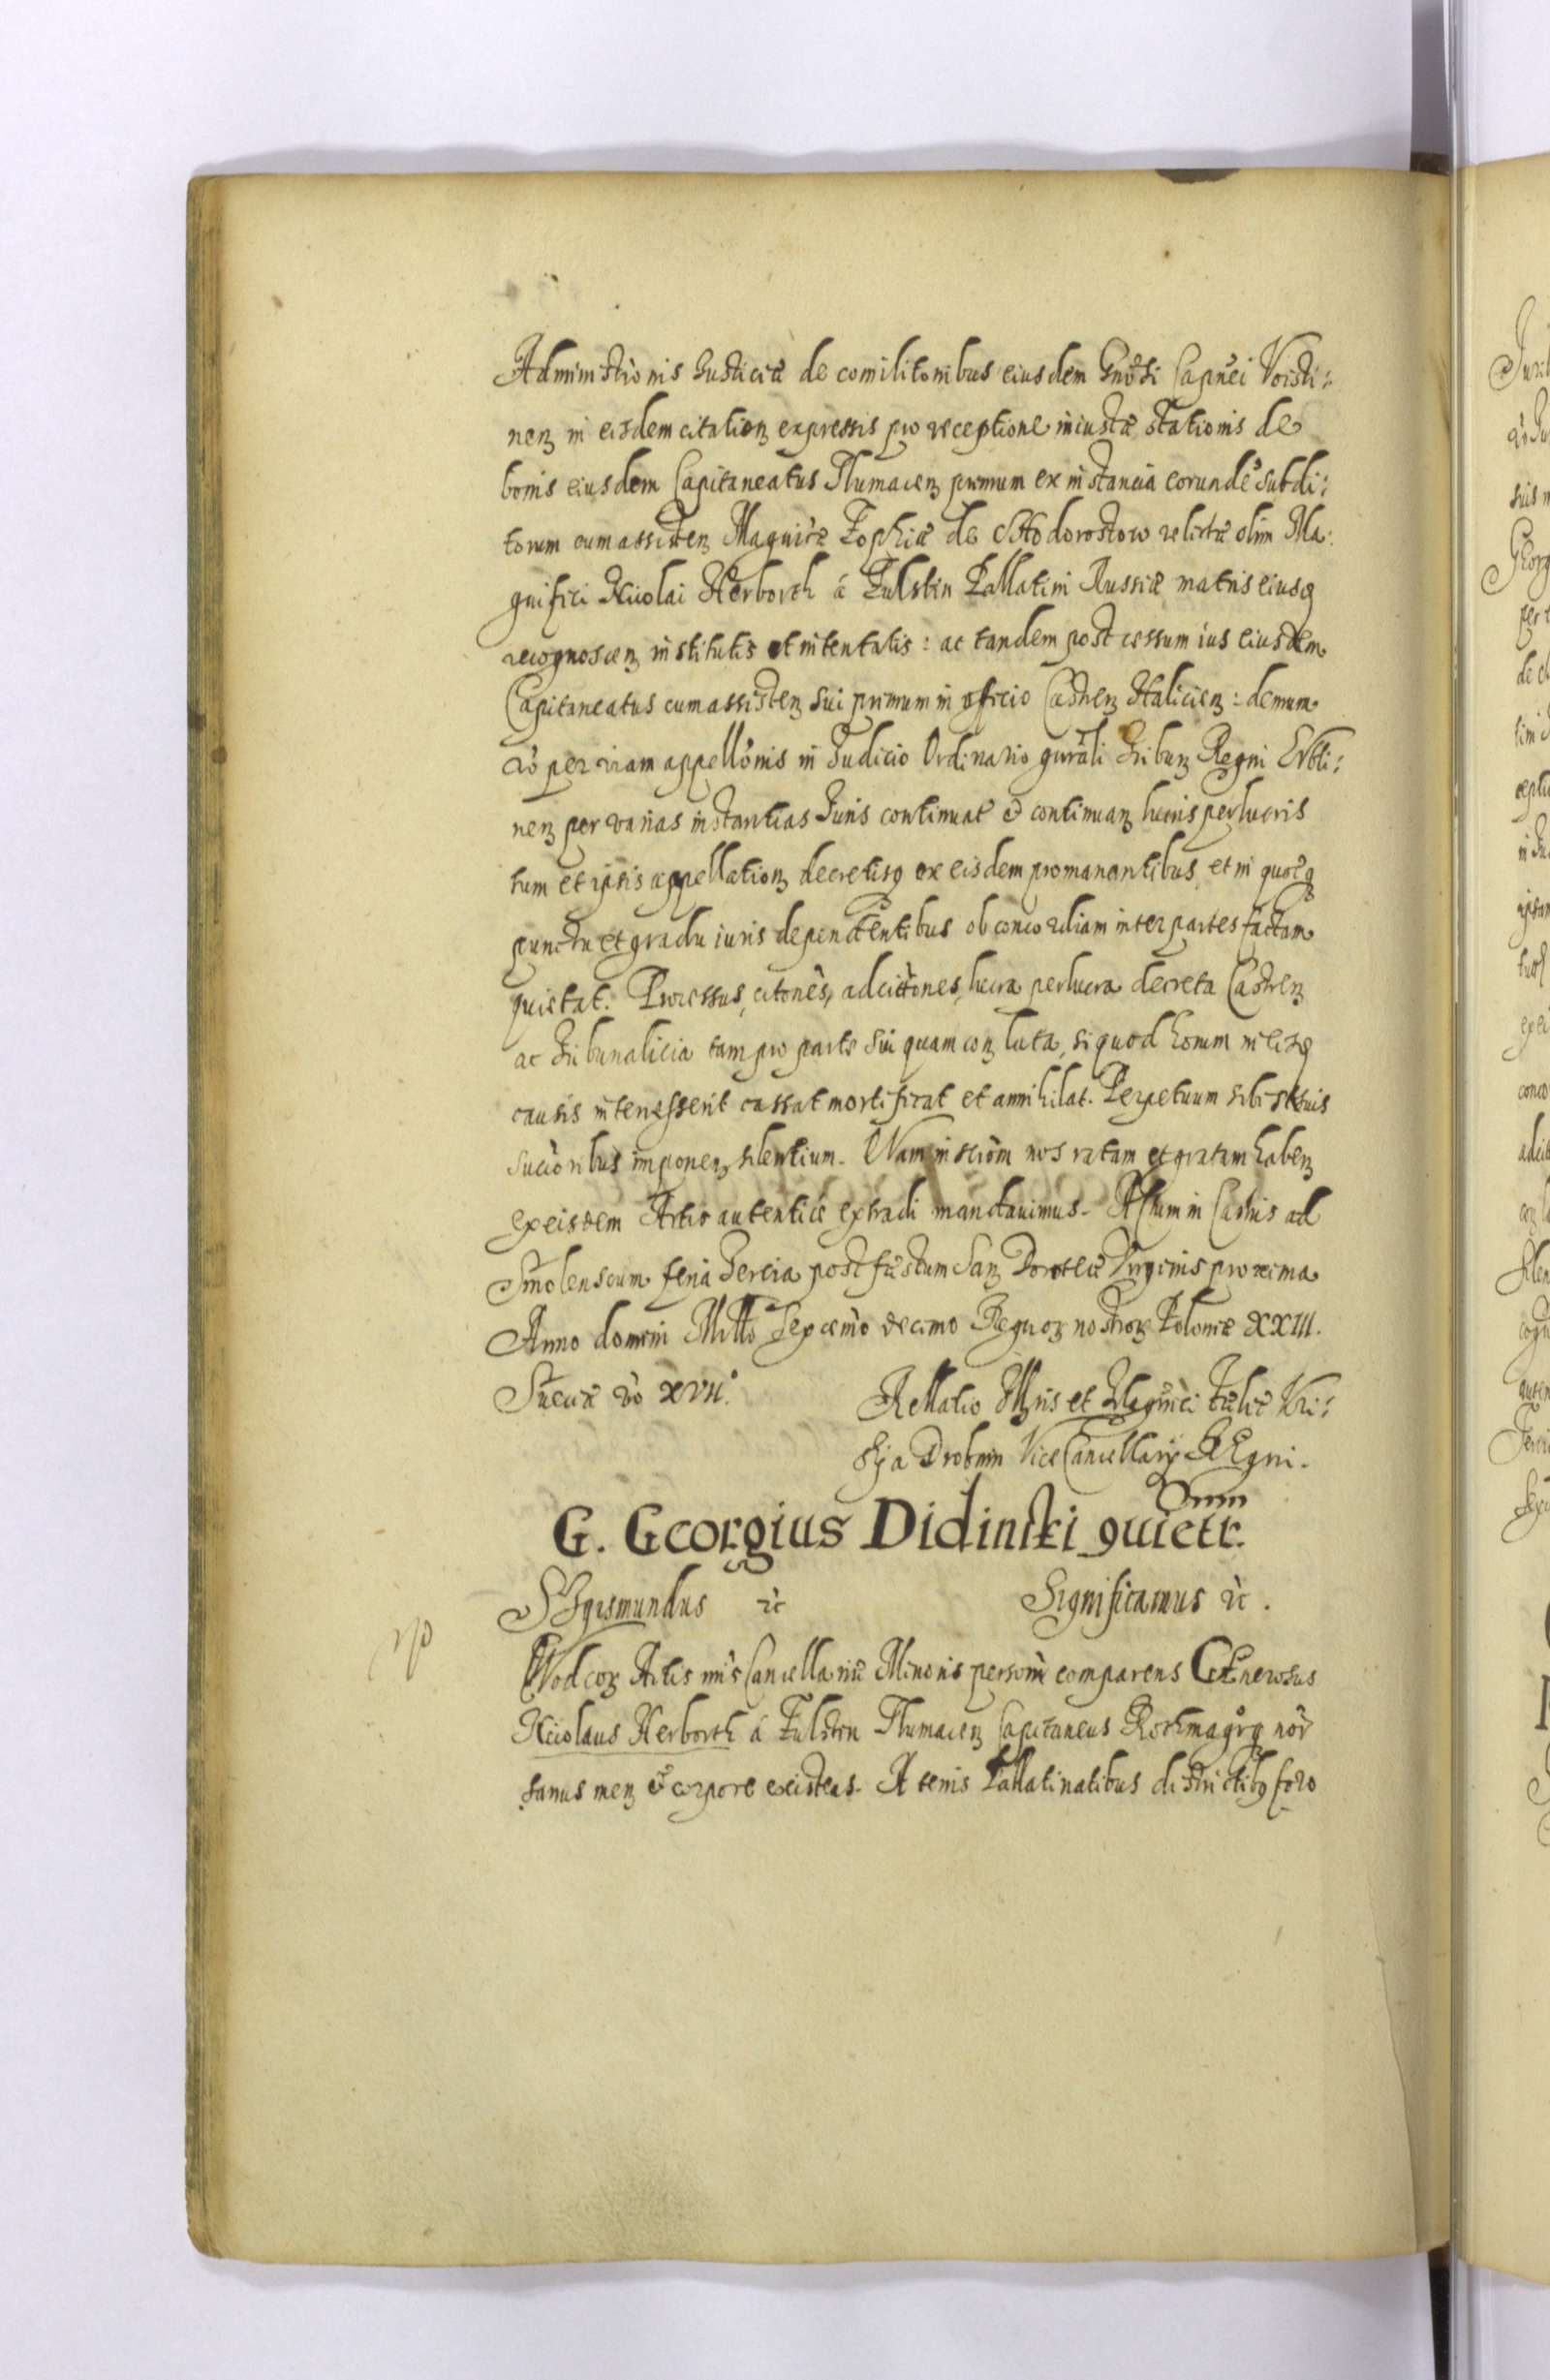 Administrõnis Justiciæ de comilitonibus eiusdem Gnõsi Capnei Voisti:
nen̄ in eisdem citation̄ expressis pro receptione iniustæ stationis de
bonis eiusdem Capitaneatus Tlumacen̄ primum ex instancia eorundẽ Subdi:
torum cum assisten̄ Magnicæ Zophiæ de Chodorostow relictæ olim Ma:
gnifici Nicolai Herborth á Fulstin Pallatini Russiæ matris eiusq
recognoscen̄ institutis et intentatis: ac tandem post cessum ius eiusdem
Capitaneatus cum assisten̄ sui primum in officio Castren̄ Halicien̄: demum
vò per viam appellõnis in Judicio Ordinario gnrãli Tribun̄ Regni Lvbli:
nen̄ per varias instantias Juris continuat & continuan̄ lucris perlucris
tum et ipsis appellation̄ decretisq ex eisdem promanantibus, et in quocq
puncto et gradu iuris dependentibus ob concordiam inter partes factam
quietat. Processus, citones, adcitõnes, lucra perlucra decreta Castren̄
ac Tribunalicia tam pro parte sui quam con̄ lata, si quod horum in eisq
causis interuesserit cassat mortificat et annihilat. Perpetuum sibi et suis
succõribus imponen̄ silentium. Nam inscrõm nos ratam et gratam haben̄
ex eisdem Actis autenticè extradi mandauimus. Actum in Castris ad
Smolenscum feria Tercia post festum San̄ Doroteæ Virginis proxima
Anno domini Millo Sexcemo decimo Regnor̄ nostror̄ Poloniæ XXIII.
Sueciæ vò XVII.
Rellatio Illris et Magnici Fælic Kri:
skj a Drobnin Vice Cancellarij REgni.
G. Georgius Didinski quietr.
SIgismundus &c Significamus &c.
QVod cor̄ Actis nris Cancellariæ Minoris personr comparens GEnerosus
Nicolaus Herborth á Fulstin Tlumacen̄ Capitaneus Rothmagrq nõr
sanus men̄ & corpore existens. A terris Pallatinatibus districtibq foro